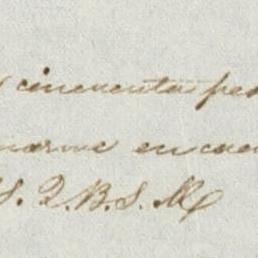 cincuenta pes
narme en cuen
S. Q. B. S. M.